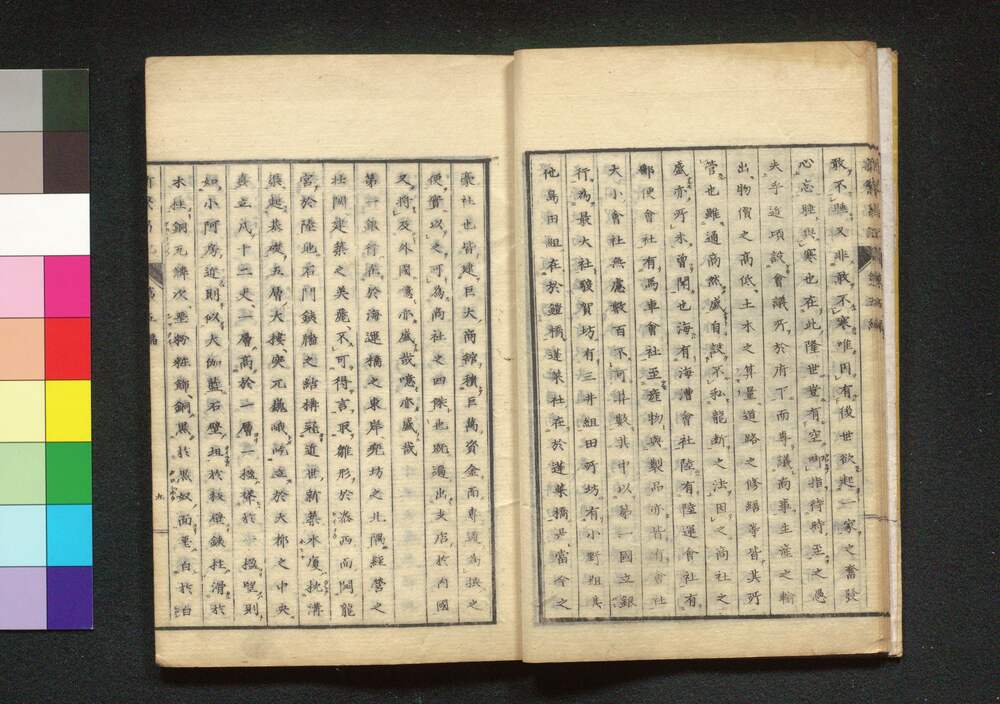 敢不聽又非敢不寒唯因有後世欲起一家之奮發
心忘聽與寒也在此隆世豈有空呻指待時至之愚
夫乎近頃設會議所於府下而專議商事生産之輸
出物價之高低土木之算量道路之修繕等皆其所
管也雖通商然盛自設不私龍斷之法因之商社之
盛亦所未曾聞也海有海漕會社陸有陸運會社有
郵便會社有馬車會社至產物與製品亦皆有會社
大小會社無慮數百不可算數其中以第一國立銀
行為最大社駿河坊有三井組田所坊有小野組其
他島田組在於鎧橋蓬萊社在於蓬萊橋是當今之
豪社也皆建巨大商館積巨萬資金而專通為換之
便實以之可為商社之四傑也既過出支店於內國
又將及外國噫亦盛哉噫亦盛哉
第一銀行在於海運橋之東岸兜坊之北隅經營之
壯岡建築之美殆不可得言取雛形於泰西而闘龍
宮於陸地石門鐵牆之結構蘊近世新築水廣挽溝
渠起基礎五層大樓突兀巍峨屹立於大都之中央
真立八十二丈一層高於一層一撥牽於一撥望則
如小阿房近則似大伽藍石壁坦於板磴鐵柱滑於
木柱銅瓦鱗次堊粉粧飾銅黑於黑奴而堊白於白
九